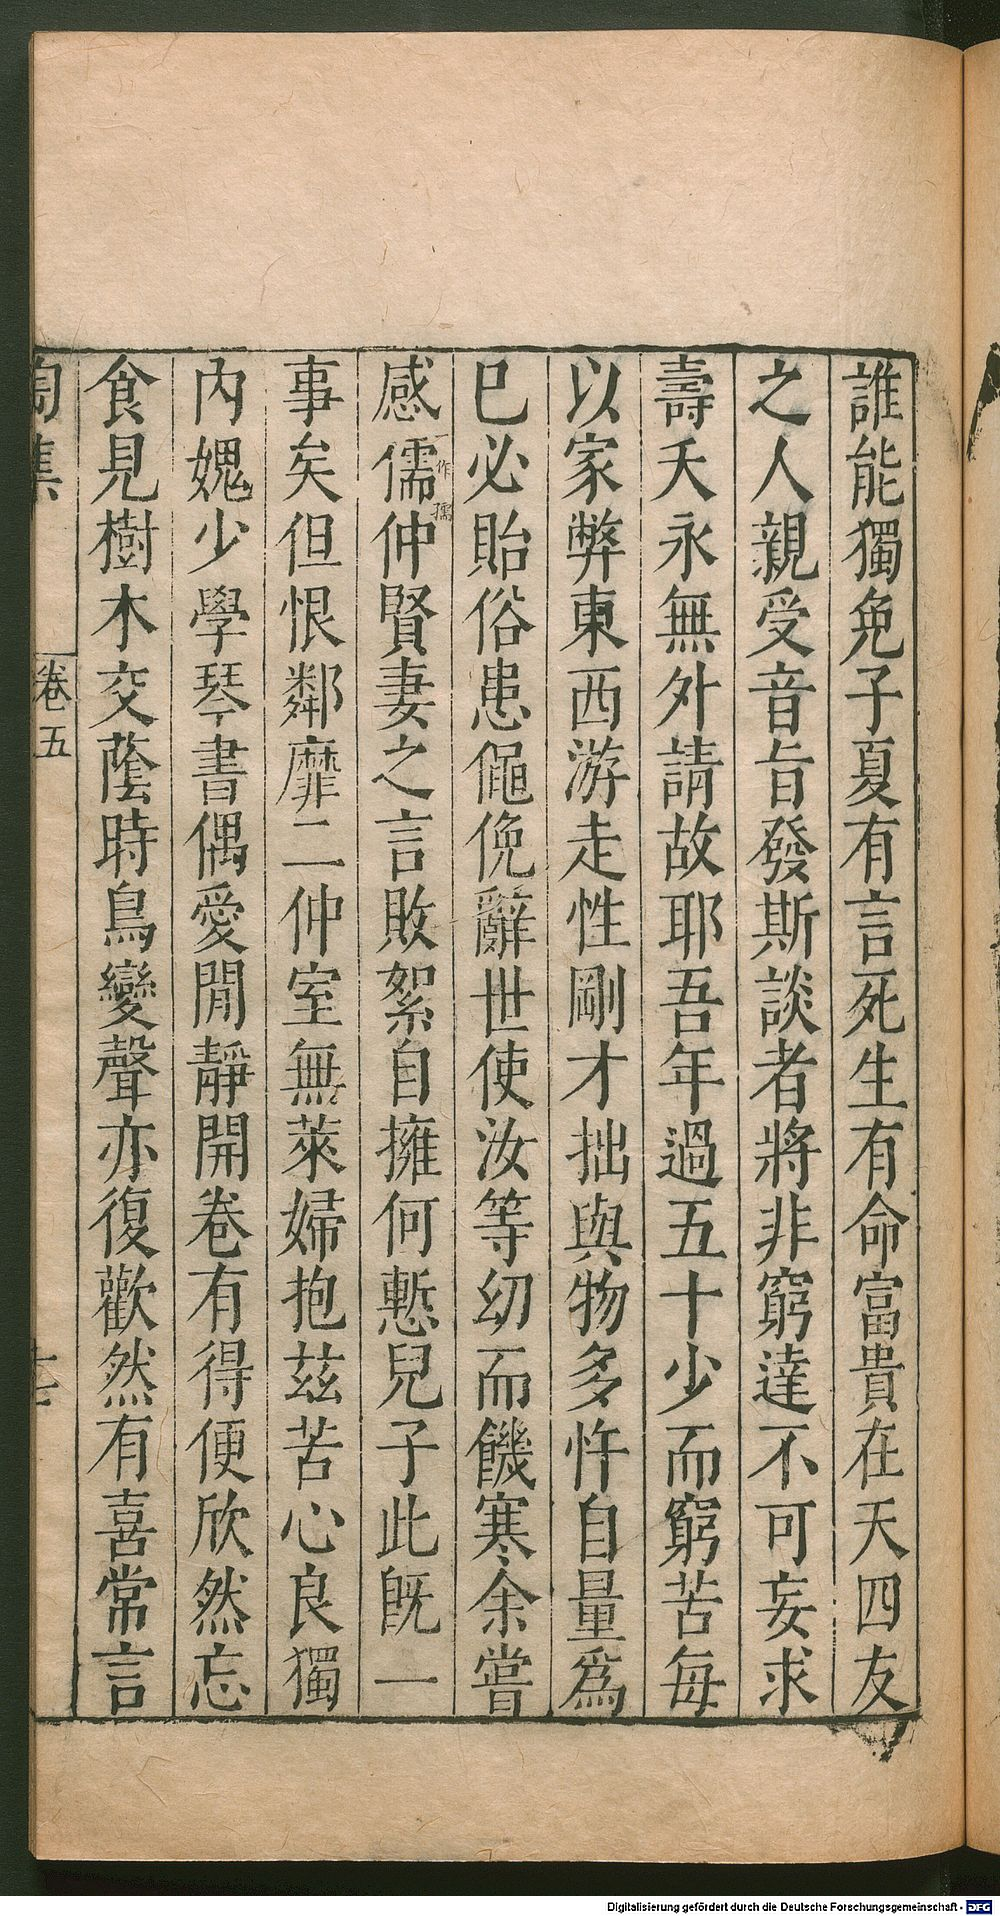 誰能獨免子夏有言死生有命富貴在天四友
之人親受音旨發斯談者將非窮達不可妄求
壽夭永無外請故耶吾年過五十少而窮苦每
以家弊東西游走性剛才拙與物多忤自量爲
巳必貽俗患僶俛辭世使汝等幼而饑寒余嘗
感儒一作孺仲賢妻之言敗絮自擁何慙兒子此既一
事矣但恨鄰靡二仲室無萊婦抱茲苦心良獨
內媿少學琴書偶愛閒靜開卷有得便欣然忘
食見樹木交蔭時鳥變聲亦復歡然有喜常言
陶集 卷五
Digitalisierung gefördert durch die Deutsche Forschungsgemeinschaft - DFG